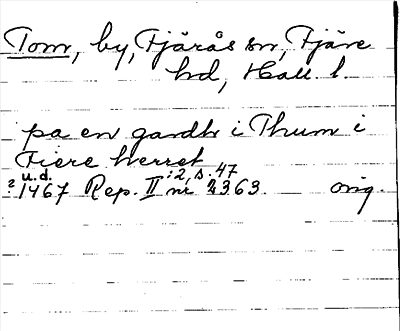 Tom, by, Fjärås sn, Fjäre
hd, Hall. l.
pa en gardh i Thum i
Fiere herret
u.d. :2, s. 47
? 1467 Rep. II nr 2363. orig.